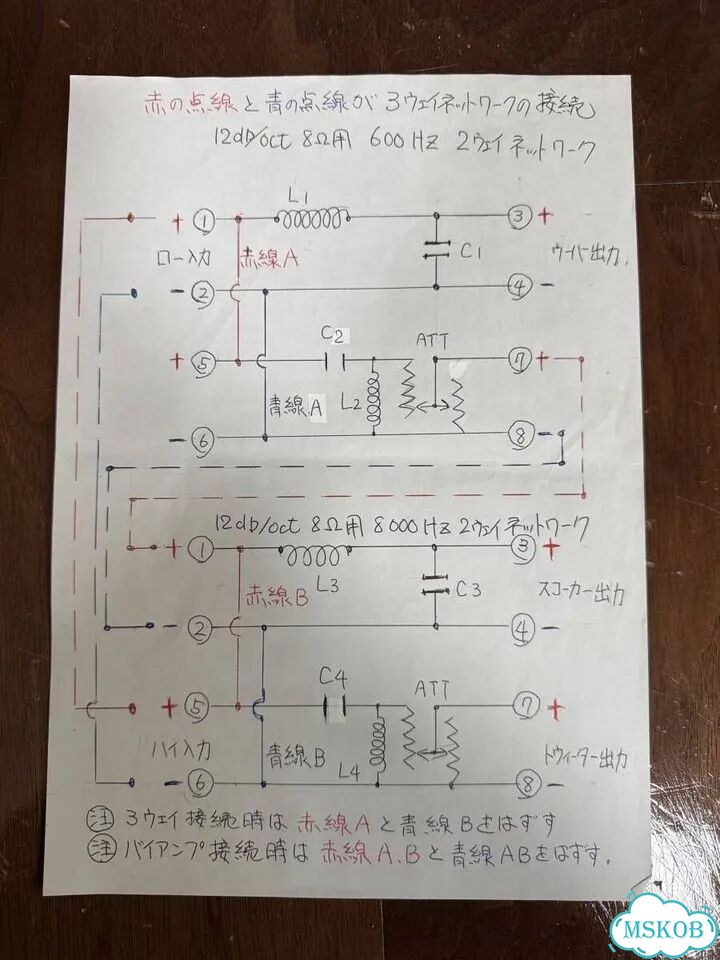 赤の点線と青の点線が3ウェイネットワークの接続
12dB/oct 8Ω用 600HZ 2ウェイネットワーク
L1
+ ① ③ +
ロー入力 赤線A C1 ウーハー出力.
- ② ④ -
C2 ATT
+ ⑤ ⑦ +
青線A L2
- ⑥ ⑧ -
12dB/oct 8Ω用 8000HZ 2ウェイネットワーク
+ ① ③ +
赤線B L3 C3 スコーカー出力
- ② ④ -
C4 ATT
+ ⑤ ⑦ +
ハイ入力 青線B L4 トウィーター出力
- ⑥ ⑧ -
注 3ウェイ接続時は赤線Aと青線Bをはずす
注 バイアンプ接続時は赤線A.Bと青線ABをはずす。
MSKOB